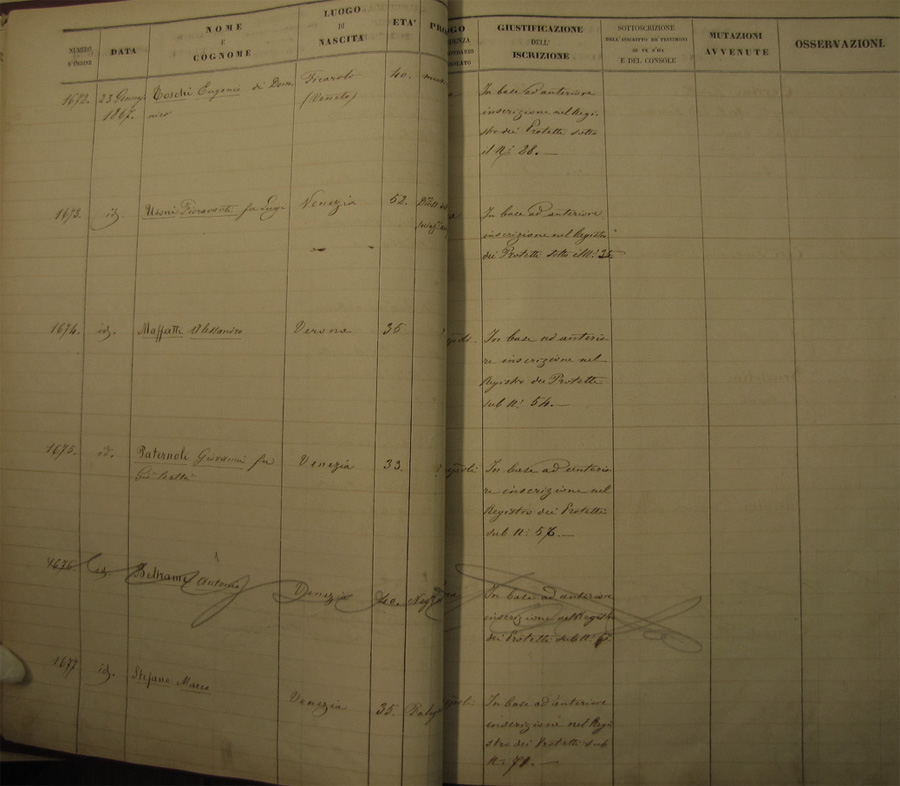 NUMERO
D'ORDINE
DATA
NOME
E
COGNOME
LUOGO
DI
NASCITA
ETA'
GIUSTIFICAZIONE
DELL'
ISCRIZIONE
SOTTOSCRIZIONE
DELL'INSCRITTO DE TESTIMONI
E DEL CONSOLE
MUTAZIONI
AVVENUTE
OSSERVAZIONI.
1672.
1867.
Toschi Eugenio di Dome
nico
Ficarolo
(Veneto)
40.
In base ad anteriore
inscrizione nel Regi-
stro dei Protetti sotto
il N: 28.
1673.
id.
Fioravanti fu Luigi
Venezia
52.
In base ad anteriore
inscrizione nel Registro
dei Protetti sotto il N: 35
1674.
id.
Maffatti Alessandro
Verona
35
In base ad anterio
re inscrizione nel
Registro dei Protetti
sub N: 54.
1675.
id.
Paternoli Giovanni fu
Venezia
33.
In base ad anterio
re inscrizione nel
Registro dei Protetti
sub N: 57.
1676.
id
Beltrame Antonio
Venezia
In base ad anteriore
inscrizione nel Registro
dei Protetti sub N:
1677.
id.
Stefano Marco
Venezia
35.
In base ad anteriore
inscrizione nel Regi
stro dei Protetti sub
N. 71.